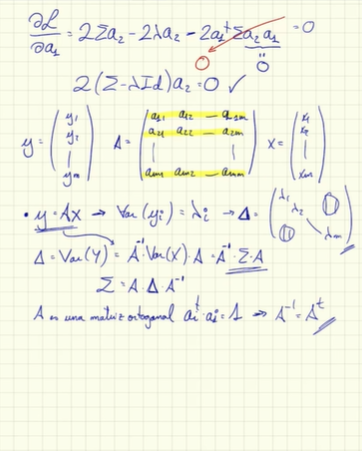 ∂L/∂a₁ = 2Σa₂ - 2λa₂ - 2a₁ᵗΣa₂a₁ = 0
0 0
2(Σ-λId)a₂=0 ✓
y = (y₁ y₂ | yₘ) A = (a₁₁ a₁₂ — a₁ₘ a₂₁ a₂₂ — a₂ₘ | | aₘ₁ aₘ₂ — aₘₘ) x = (x₁ x₂ | xₘ)
• y = Ax → Var(yᵢ) = λᵢ → Δ = (λ₁ λ₂ \ λₘ 0 0)
Δ = Var(Y) = A⁻¹ Var(X) · A = A⁻¹ · Σ · A
Σ = A · Δ A⁻¹
A es una matriz ortogonal aᵢᵗ · aᵢ = 1 → A⁻¹ = Aᵗ